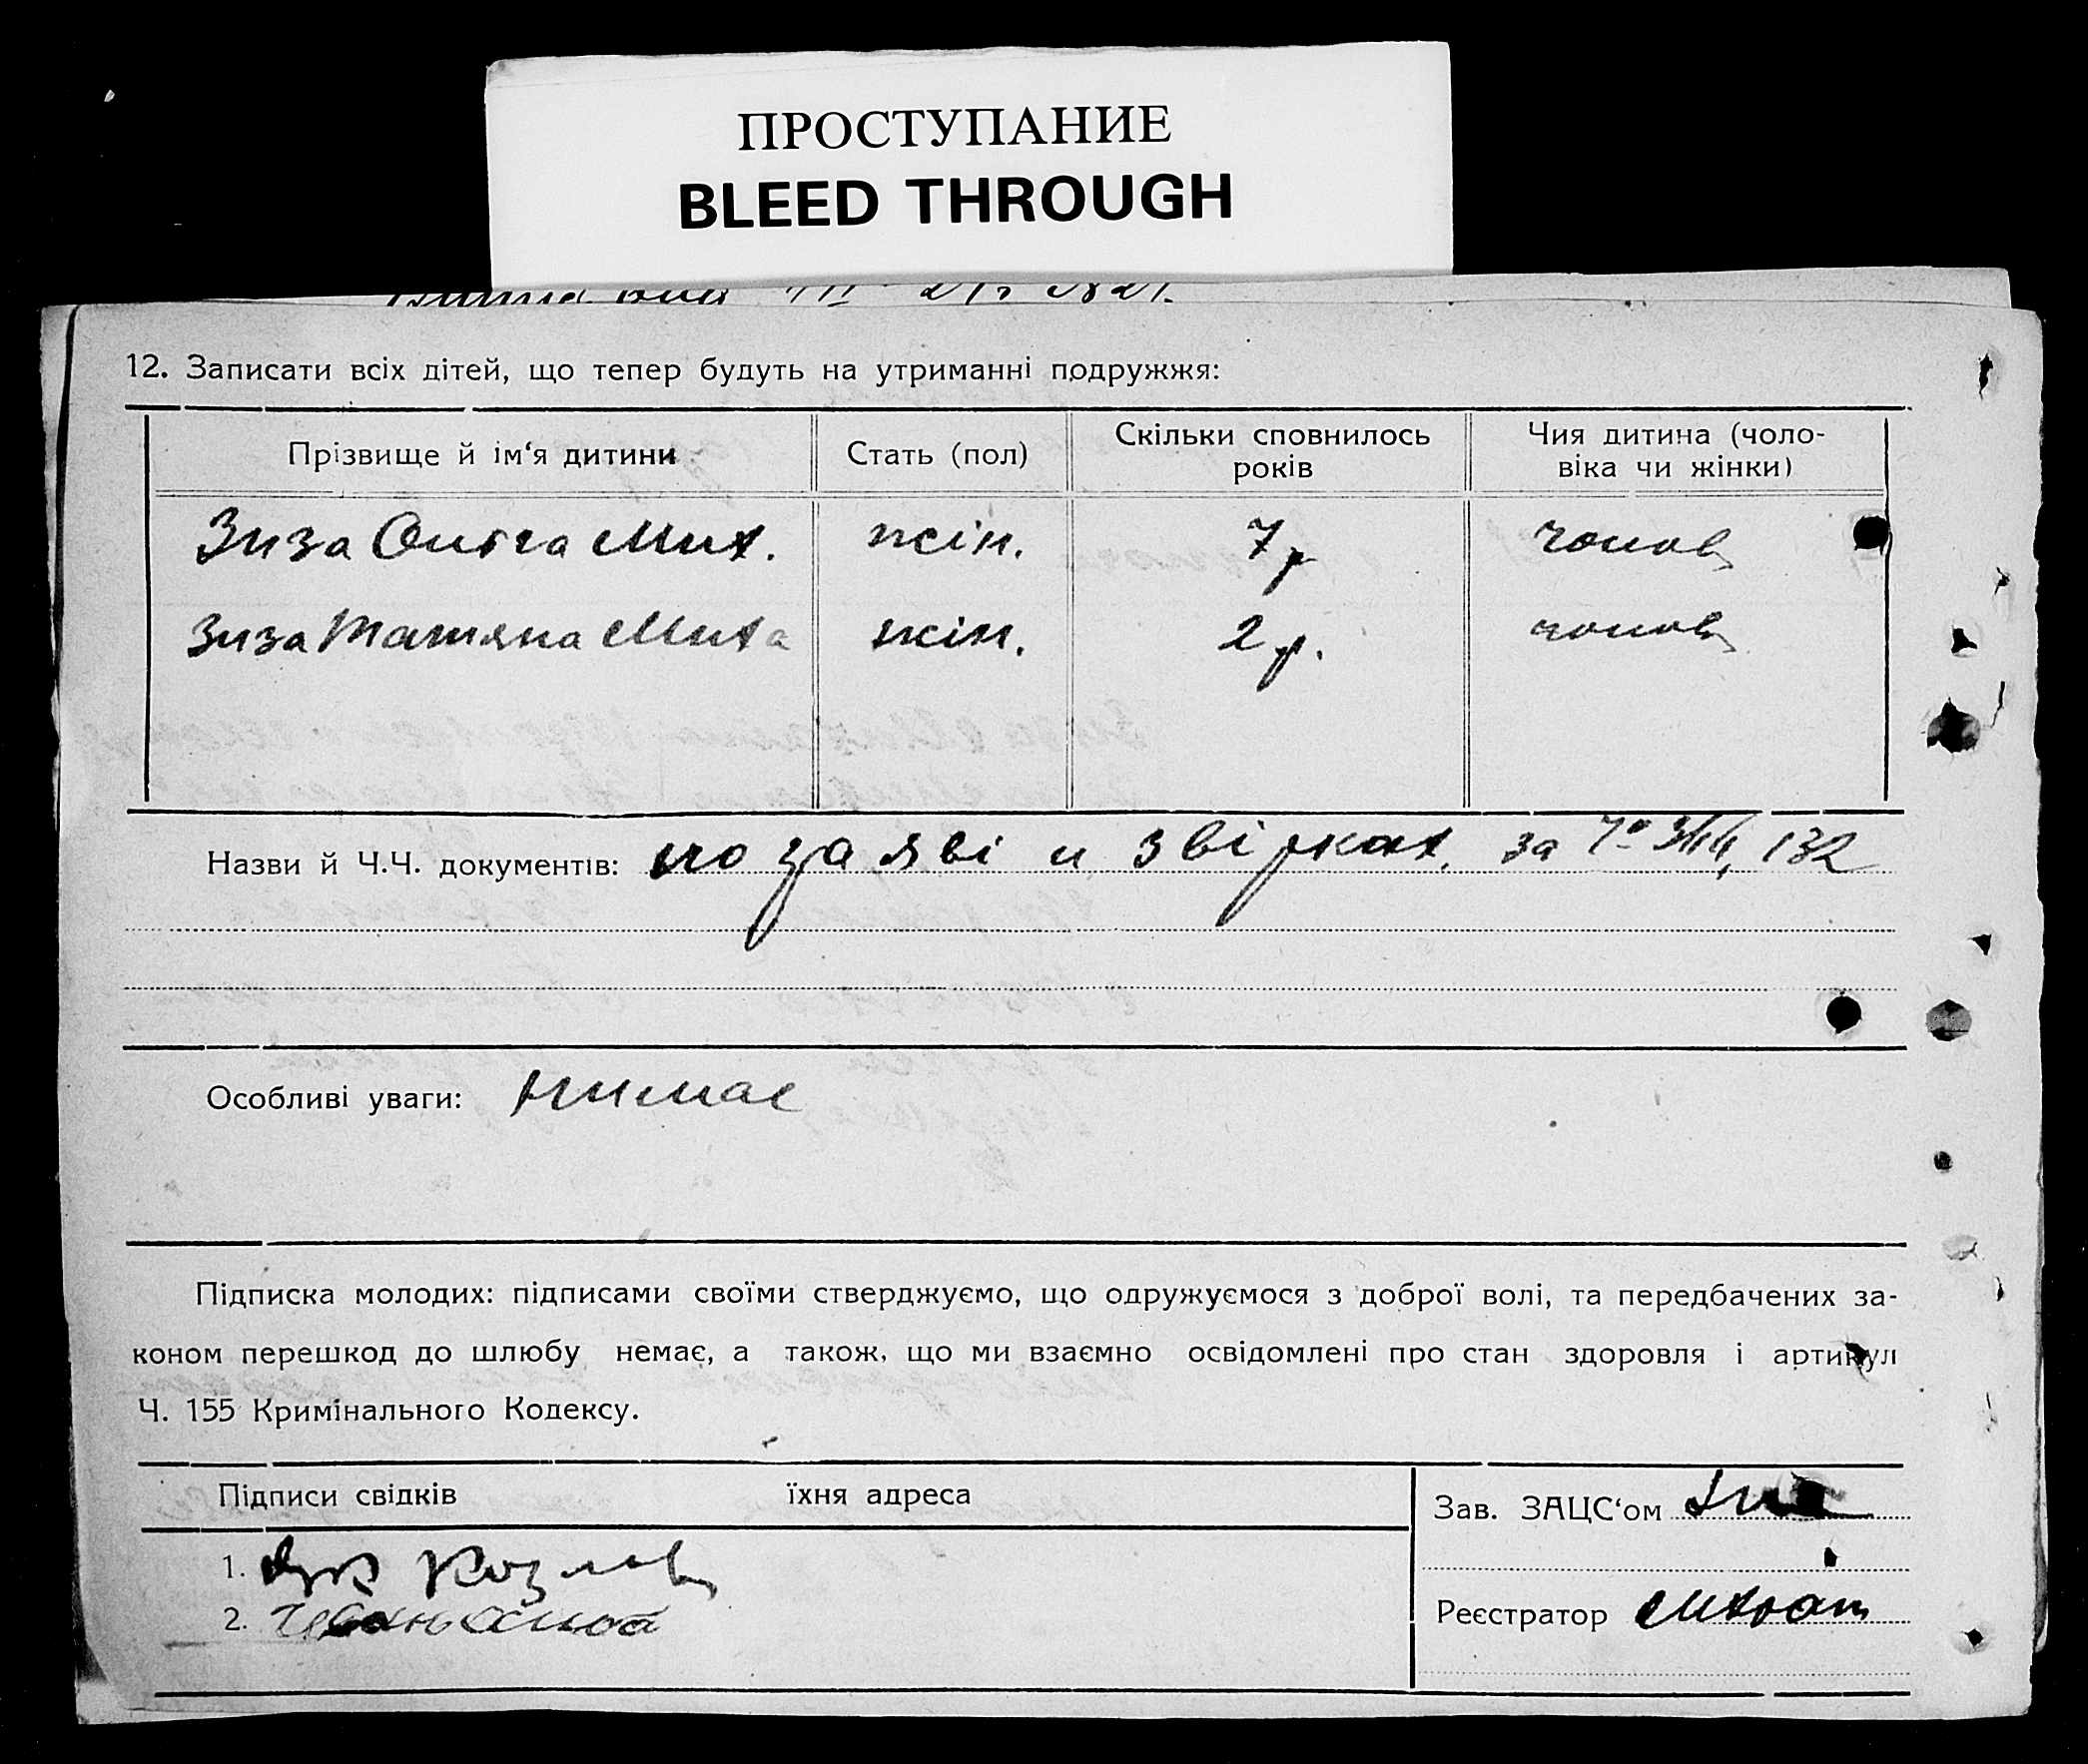 ПРОСТУПАНИЕ
BLEED THROUGH
12. Записати всіх дітей, що тепер будуть на утриманні подружжя:
Прізвище й ім'я дитини
Стать (пол)
Скільки сповнилось
років
Чия дитина (чоло-
віка чи жінки)
Зиза Ольга Мих. жін. 7 р чолов
Зиза Татяна Миха жін. 2 р. чолов
Назви й Ч.Ч. документів: по заяві и звірках. за 132
Особливі уваги: нимає
Підписка молодих: підписами своїми стверджуємо, що одружуємося з доброї волі, та передбачених за-
коном перешкод до шлюбу немає, а також, що ми взаємно освідомлені про стан здоровля і артикул
Ч. 155 Кримінального Кодексу.
Підписи свідків їхня адреса
1. Козлов
2.
Зав. ЗАЦС'ом
Реєстратор